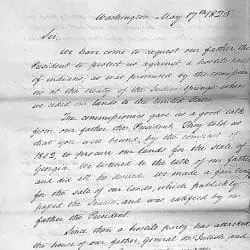 Washington May 17th 1825
Sir,
We have come to request our father the
President to protect us against a hostile band
of indians, as was promised by the commission
ers at the treaty of the Indian Springs when
we ceded our lands to the United States.
The commissioners gave us a good talk
from our father the President, They told us
that you were bound, by the compact of
1802, to procure our lands for the State of
Georgia. We listened to the talk of our father
and did all he desired. We made a fair treaty
for the sale of our lands, which publickly
passed the Senate, and was ratified by our
father the President.
Since then a hostile party has attacked
the house of our father, General McIntosh, and